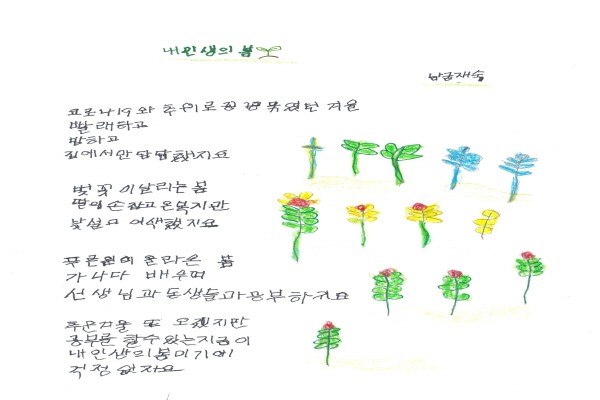 내 인생의 봄
남궁재숙
코로나19와 추위로 꽁꽁 묶였던 겨울
빨래하고
밥하고
집에서만 답답했지요
벚꽃 이 날리는 봄
딸이 손잡고 온 복지관
낯설고 어색했지요
푸른 잎이 올라온 봄
가나다 배우며
선생님과 동생들과 공부하지요
추운겨울 또 오겠지만
공부를 할수 있는 지금이
내 인생의 봄이기에
걱정 없지요